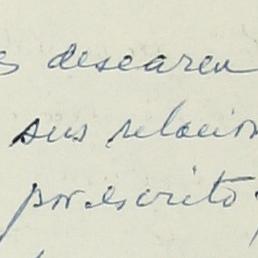 s desearen
sus relacion
por escrito,